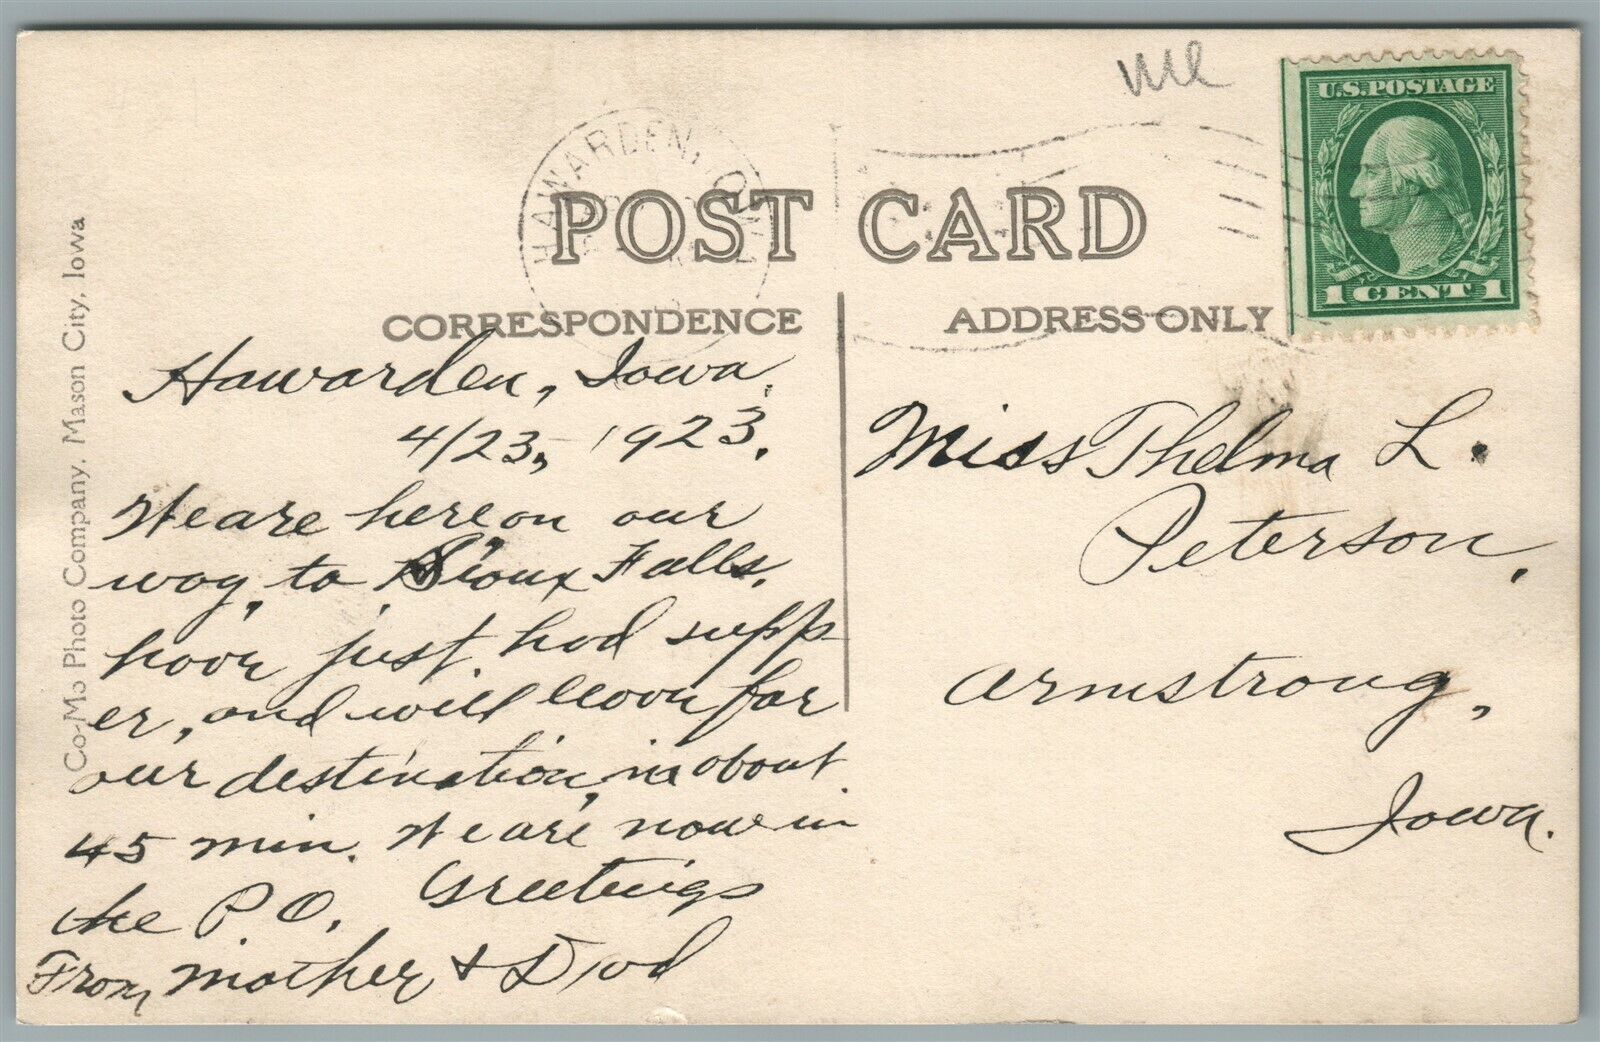 me
U.S. POSTAGE
1 CENT 1
HAWARDEN, IOWA
POST CARD
CORRESPONDENCE
ADDRESS ONLY
Co-Mo Photo Company. Mason City, Iowa
Hawarden, Iowa.
4/23, 1923.
We are here on our
way, to Sioux Falls.
have just had supp-
er, and will leave for
our destination, in about
45 min. We are now in
the P.O. Greetings
From Mother & Dad
Miss Thelma L.
Peterson,
Armstrong,
Iowa.